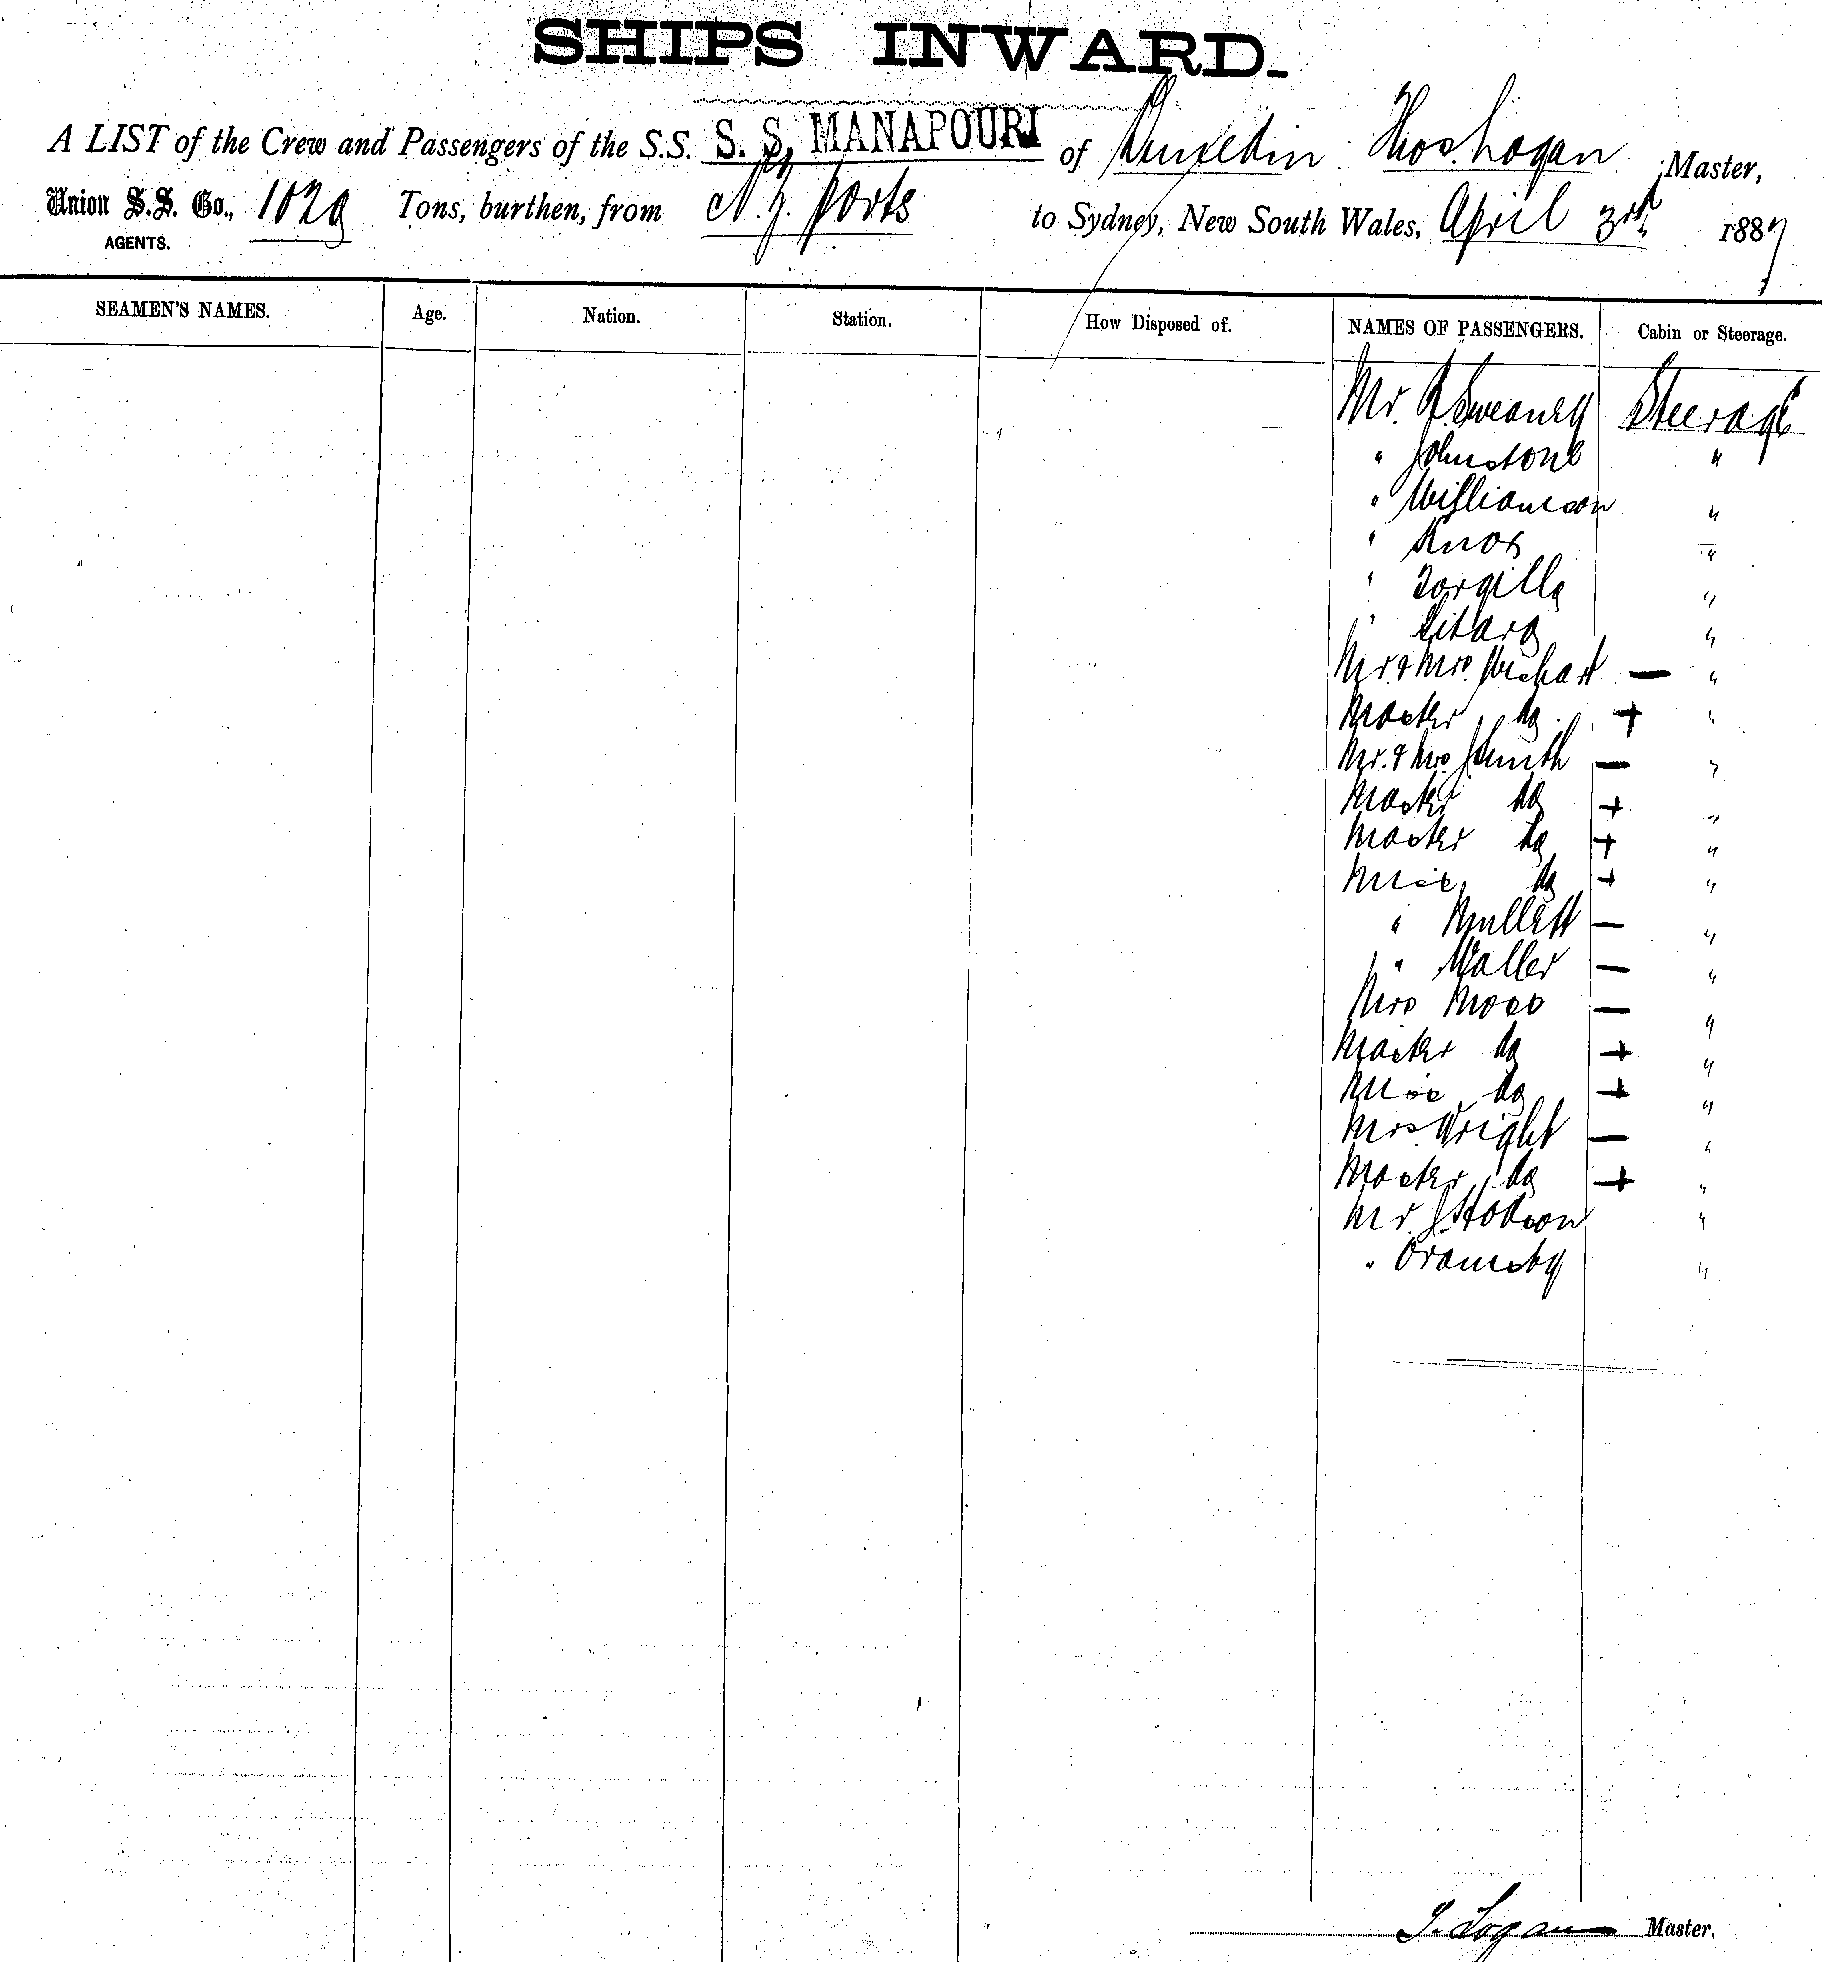 SHIPS INWARD.
A LIST of the Crew and Passengers of the S.S. S. S. MANAPOURI of Dunedin Thos. Logan Master,
Union S.S. Co., 1020 Tons, burthen, from N.Z. Ports to Sydney, New South Wales, April 3rd 1887
AGENTS.
SEAMEN'S NAMES. Age. Nation. Station. How Disposed of. NAMES OF PASSENGERS. Cabin or Steerage.
Mr. Sweaney Steerage
" Johnstone "
" Williamson "
" Knox "
" "
" "
Mr. & Mrs. — "
Master do + "
Mr. & Mrs Smith — "
Master do + "
Master do + "
Miss do + "
" Mullett — "
" Waller — "
Mrs Moss — "
Master do + "
Miss do + "
Mrs Wright — "
Master do + "
Mr J Hodson "
" "
T. Logan Master.